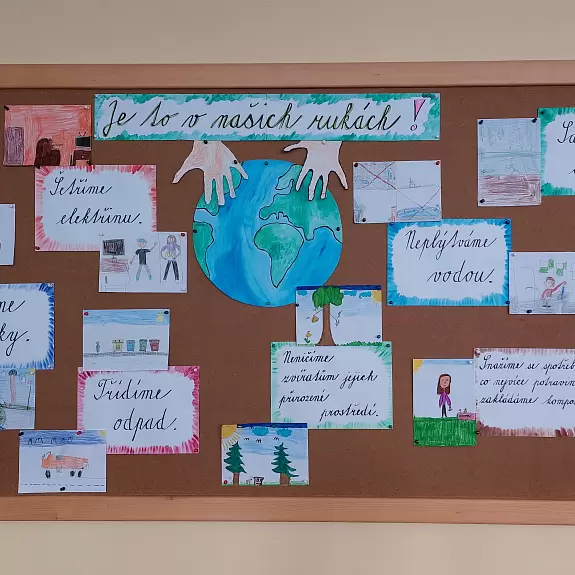 Je to v našich rukách!
Šetříme
elektřinu.
Neplýtváme
vodou.
Třídíme
odpad.
Neničíme
zvířatům jejich
přirozené
prostředí.
Snažíme se
co nejvíce potravin
zakládáme